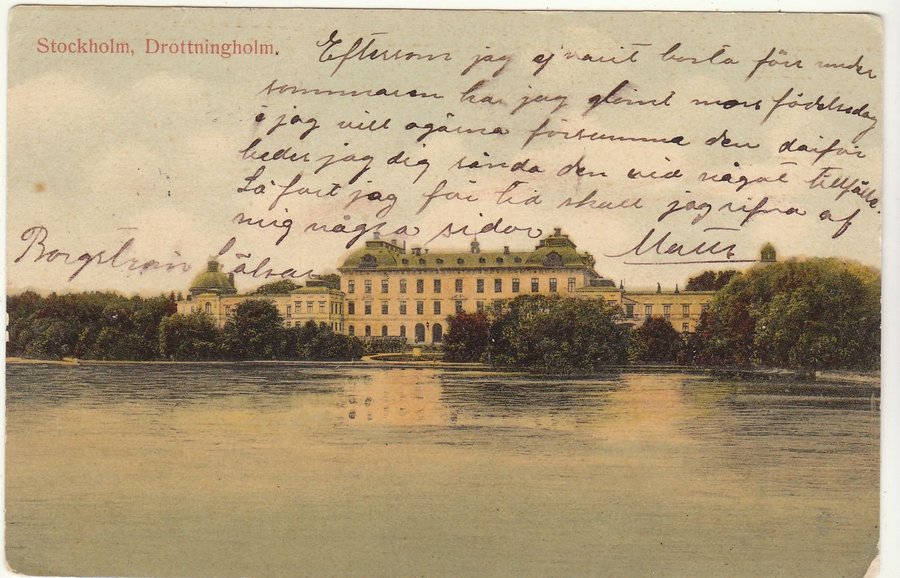 Stockholm, Drottningholm.
Eftersom jag ej varit borta förr under
sommaren har jag glömt mors födelsedag
o jag vill ogärna försumma den därför
beder jag dig sända den vid något tillfälle.
Så fort jag får tid skall jag rifva af
mig några sidor
Borgström hälsar